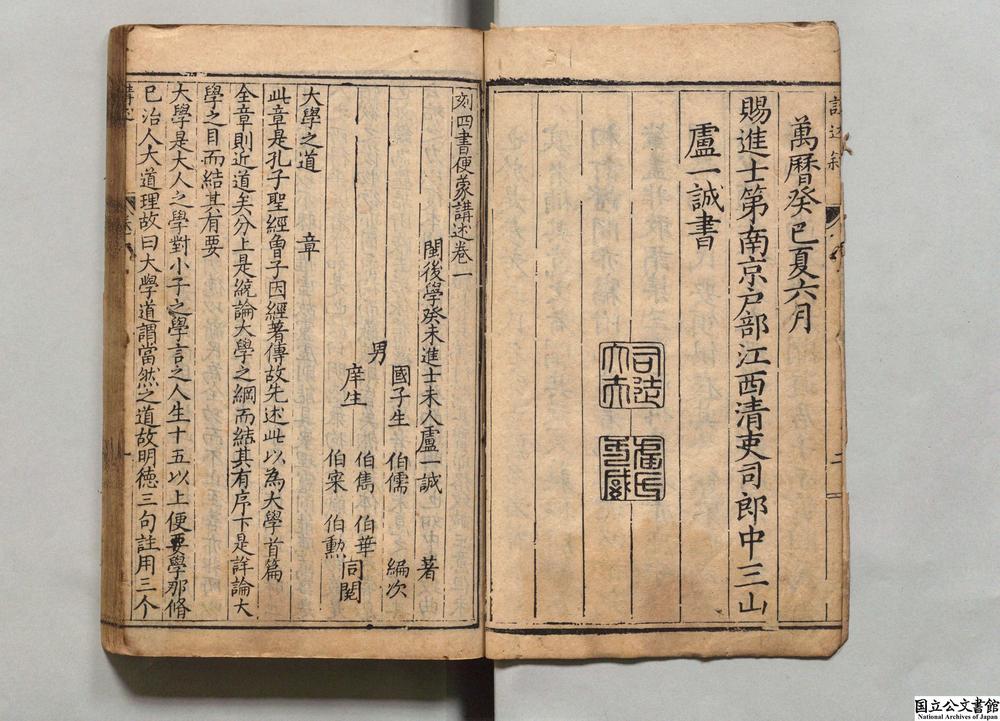 萬曆癸巳夏六月
賜進士第南京戶部江西清吏司郎中三山
盧一誠書
刻四書便蒙講述卷一
閩後學癸未進士未人盧一誠 著
國子生 伯儒 編次
男
庠生 伯雋 伯華 同閱
伯寀 伯勲
大學之道 章
此章是孔子聖經曾子因經著傳故先述此以為大學首篇
全章則近道矣分上是統論大學之綱而結其有序下是詳論大
學之目而結其有要
大學是大人之學對小子之學言之人生十五以上便要學那脩
已治人大道理故曰大學道謂當然之道故明德三句註用三个
国立公文書館
National Archives of Japan